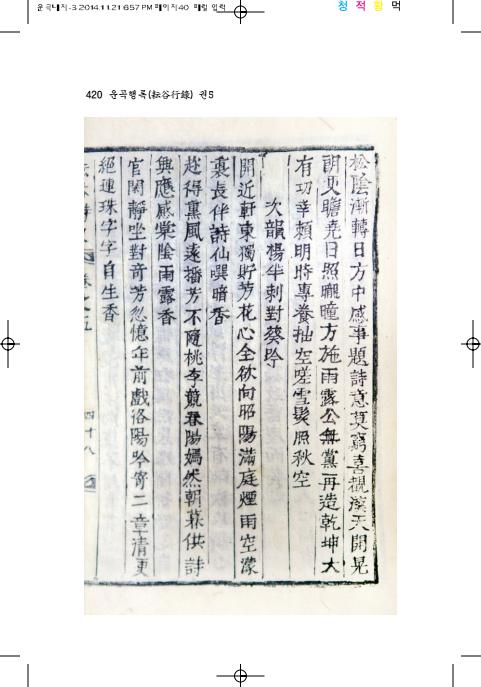 운곡대지-3 2014.11.21 6:57 PM 페이지40 매립 입력
청 적 황 먹
420 운곡행록(耘谷行錄) 권5
松陰漸轉日方中感事題詩意莫寫喜觀漢天開晃
朗更瞻堯日照曈曨方施雨露公無黨再造乾坤大
有功幸賴明時專養拙空嗟雪髮照秋空
次韻楊半刺對葵吟
開近軒東獨貯芳花心全欲向昭陽滿庭煙雨空濛
裏長伴詩仙噀暗香
越得薰風遠播芳不隨桃李競春陽嫣然朝暮供詩
興應感棠陰雨露香
官閑靜坐對奇芳忽憶年前戲洛陽吟寄二章清更
絕連珠字字自生香
卷之五
四十八